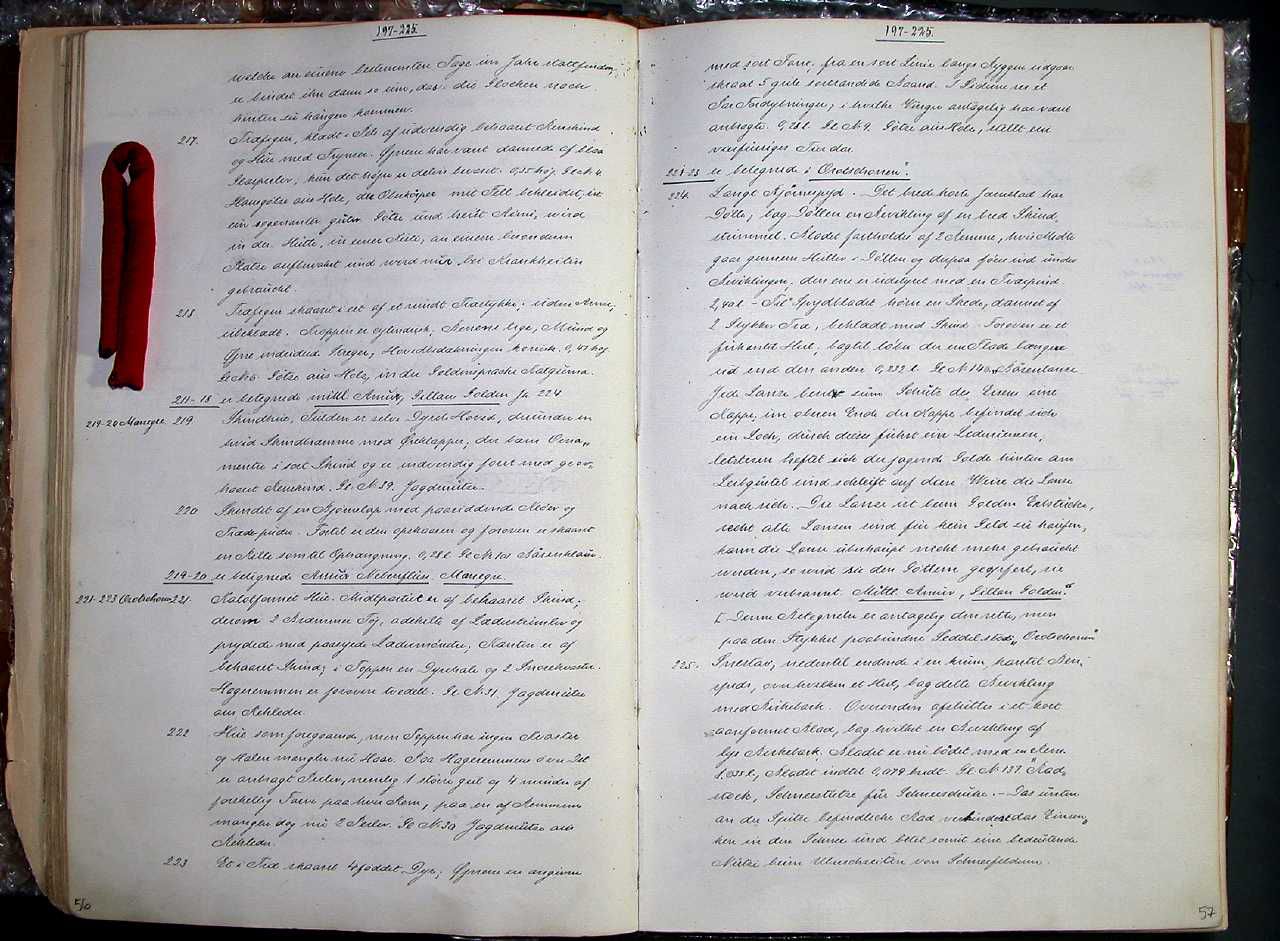 197-225.
welche an einem bestimmten Tage im Jahr stattfinden,
er bindet ihn dann so um, das die Glocken nach
hinten zu hängen kommen.
217. Træfigur, klædt i Pels af udvendig behaaret Renskind
og Hue med Frynser. Øjnene har været dannede af blaa
Glasperler, kun det højre er delvis bevaret. 0,35 høj. Gl. N. 4.
Hausgötze aus Holz, der Oberkörper mit Fell bekleidet, ist
ein sogenannter guter Götze und heißt Aemi, wird
in der Hütte, in einer Kiste, an einem besondern
Platze aufbewahrt und wird nur bei Krankheiten
gebraucht.
218 Træfigur skaaret i eet af et rundt Træstykke; uden Arme,
ubeklædt. Kroppen er cylindrisk, Benene lige, Mund og
Øjne indridsede Streger, Hovedbedækningen konisk. 0,47 høj.
Gl. N. 6. Götze aus Holz, in der Goldensprache Kalguma.
211-18 er betegnede mittl. Amur, Gillau Golden jr. 224
219-20 Manegre 219 Skindhue, Pulden er selve Dyrets Hoved, derunder en
hvid Skindbræmme med Øreklapper, der bærer Orna-
menter i sort Skind og er indvendig foret med graa-
haaret Renskind. Gl. N. 39. Jagdmütze.
220 Skindet af en Bjørnelap med paasiddende Kløer og
Trædepuder. Fortil er den opskaaren og foroven er skaaret
en Strille som til Ophængning. 0,28 l. Gl. N. 101 Bärenklaue.
219-20 er betegnede Amur Nebenfluss. Manegre.
221-223 Orotschonen 221. Kalotformet Hue. Midtpartiet er af behaaret Skind;
derom 2 Bræmmer Tøj, adskilte af Læderstrimler og
prydede med paasyede Lædermønstre. Kanten er af
behaaret Skind; i Toppen en Dyrehale og 2 Snorekvaster.
Hageremmen er foroven tvedelt. Gl. N. 31. Jagdmütze
aus Rehleder.
222 Hue som foregaaende, men Toppen har ingen Kvaster
og Halen mangler nu Haar. Paa Hageremmens øvre Del
er anbragt Perler, nemlig 1 større gul og 4 mindre af
forskellig Farve paa hver Rem, paa en af Remmene
mangler dog nu 2 Perler. Gl. N. 30 Jagdmütze aus
Rehleder.
223 Et i Træ skaaret 4 føddet Dyr; Øjnene er angivne
5/0
197-225.
med sort Farve, fra en sort Linie langs Ryggen udgaar
skraat 5 grits sortrandede Baand. I Siderne ses et
Par Fordybninger, i hvilke Vinger antagelig har været
anbragte. 0,28 l. Gl. N. 9. Götze aus Holz, stellt ein
vierfüssiges Tier dar.
221-23 er betegnede i "Orotschonen".
224. Langt Bjørnespyd. Det bred korte Jærnblad har
Dölle; bag Döllen en Bevikling af en bred Skind-
strimmel. Bladet fastholdes af 2 Remme, hvis Midte
gaar gennem Huller i Döllen og derpaa føres ind under
Beviklingen, den ene er udstyret med en Tværpind.
2,40 l. - Til Spydbladet hører en Skede, dannet af
2 Stykker Træ, beklædt med Skind. Foroven er et
firkantet Hul, bagtil løber den ene Flade længere
ud end den anden 0,232 l. Gl. N. 140a Bärenlanze
Jede Lanze besitzt zum Schutze des Eisens eine
Kappe, im oberen Ende der Kappe befindet sich
ein Loch, durch dieses führt ein Lederriemen,
letzteren heftet sich der jagende Golde hinten am
Leibgürtel und schleift auf diese Weise die Lanze
nach sich. Die Lanze ist beim Golden Erbstücke,
sucht alle Lanzen und für kein Geld zu kaufen,
kann die Lanze überhaupt nicht mehr gebraucht
werden, so wird sie den Göttern geopfert, sie
wird verbrannt. Mittl. Amur, Gillau Golden."
[Denne Betegnelse er antagelig den rette, men
paa den Stykket paabindne Seddel staar "Orotschonen"
225. Snestav, nedentil endende i en krum, kantet Ben-
spids, over hvilken et Hul, bag dette Bevikling
med Birkebark. Overenden afsluttes i et kort
aareformet Blad, bag hvilket en Bevikling af
lys Birkebark. Bladet er nu bødet med en Rem.
1,035 l., Bladet indtil 0,079 bredt. Gl. N. 137. "Rad-
stock, Schneestütze für Schneeschuhe. - Das unten
an der Spitze befindliche Rad verhindere das Einsin-
ken in den Schnee und bietet somit eine bedeutende
Stütze beim Überschreiten von Schneefeldern.
57